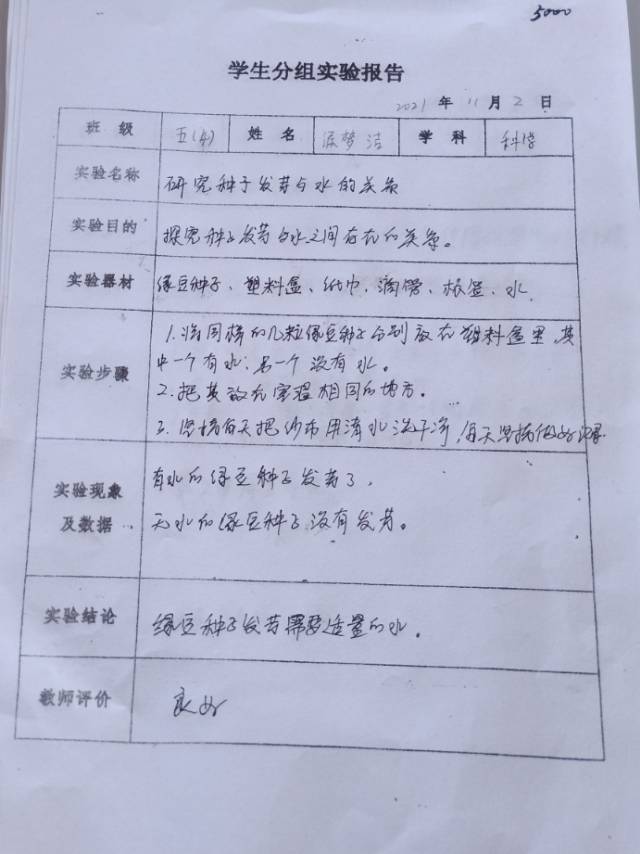 5000
学生分组实验报告
2021 年 11 月 2 日
班 级 五(4) 姓 名 梦洁 学 科 科学
实验名称 研究种子发芽与水的关系
实验目的 探究种子发芽与水之间存在的关系。
实验器材 绿豆种子、塑料盒、纸巾、滴管、标签、水
实验步骤
1.将同样的几粒绿豆种子分别放在塑料盒里,其
中一个有水;另一个没有水。
2.把其放在室温相同的地方。
3.坚持每天把纱布用清水洗干净,每天坚持做好
实验现象及数据
有水的绿豆种子发芽了,
无水的绿豆种子没有发芽。
实验结论 绿豆种子发芽需要适量的水。
教师评价 良好